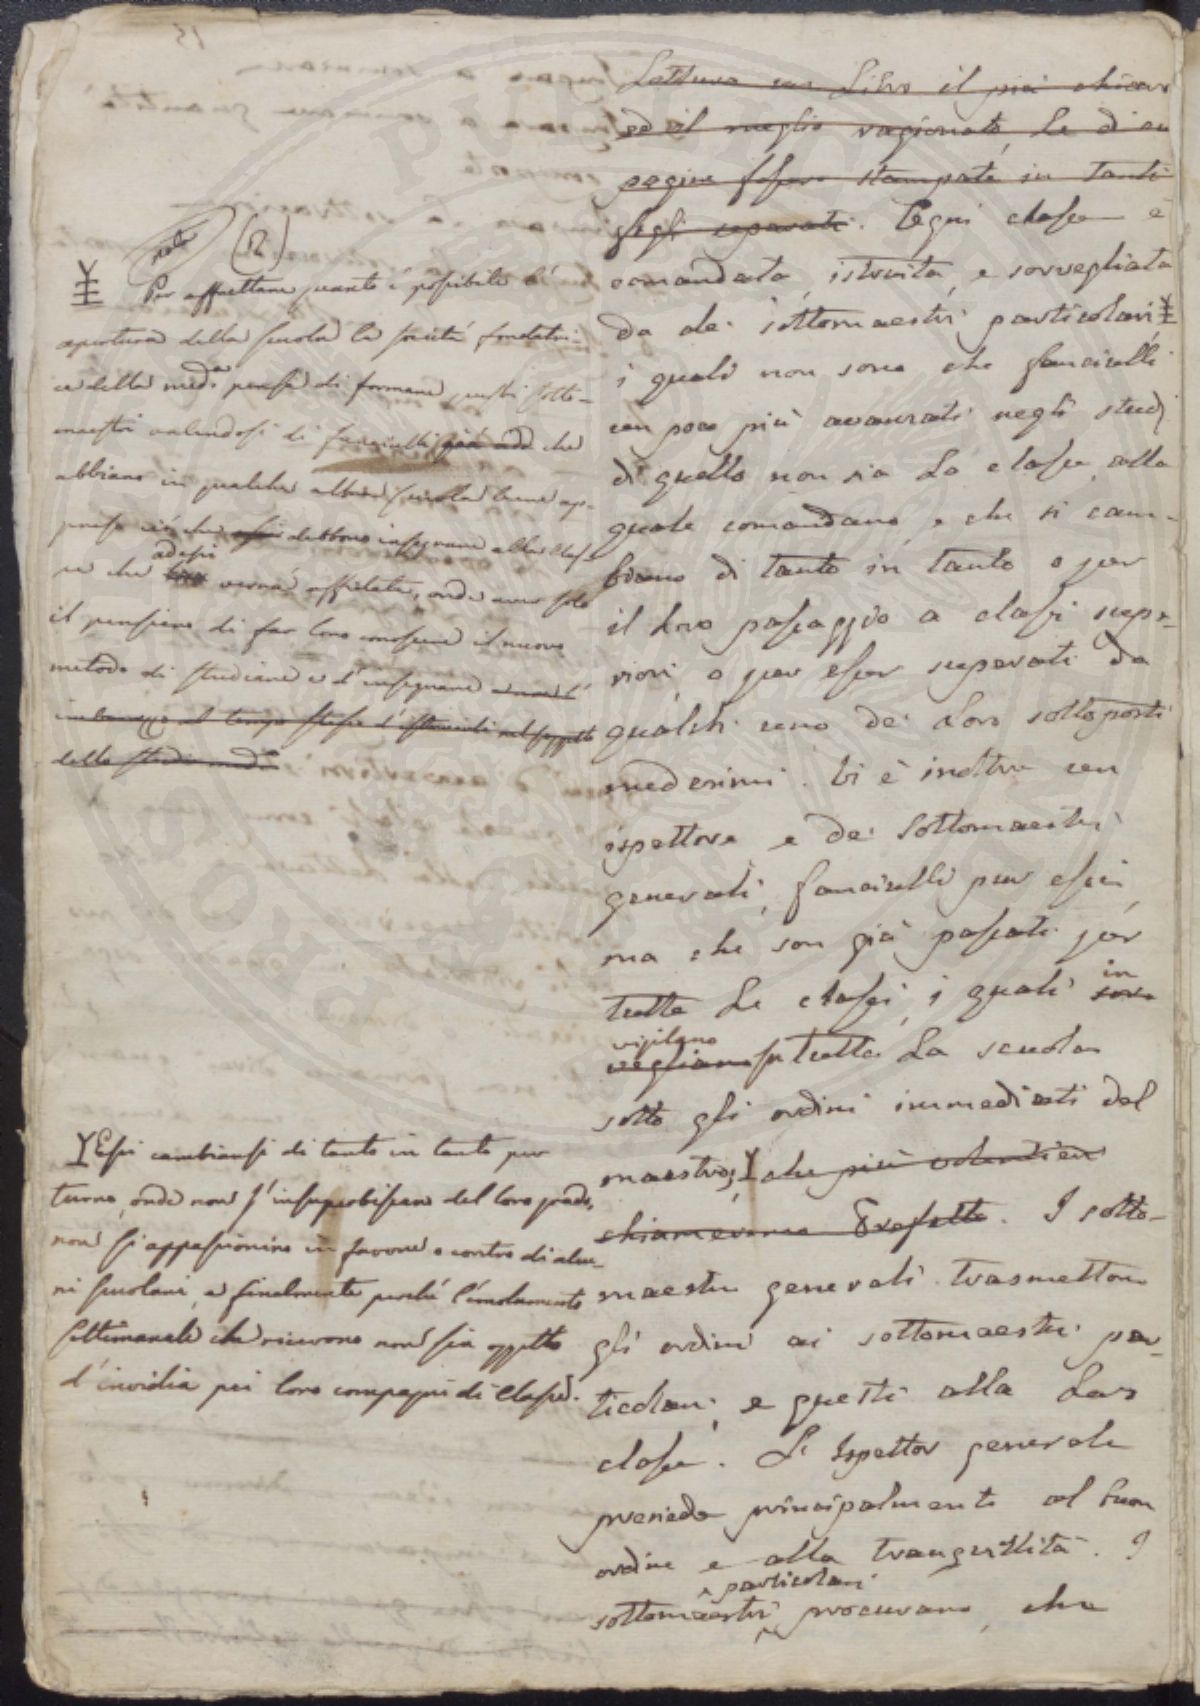 Lettura un Libro il più chiaro
ed il meglio ragionato, Le di cui
pagine fosser stampate in tanti
fogli separati. Ogni classe è
comandata, istruita, e sorvegliata
da de' sottomaestri particolari,
i quali non sono che fanciulli
un poco più avanzati negli studj
di quello non sia La classe, alla
quale comandano, e che si cam-
biano di tanto in tanto o per
il Loro passaggio a classi supe-
riori, o per esser superati da
qualch' uno de' Loro sottoposti
medesimi. Vi è inoltre un
ispettore e de' Sottomaestri
generali, fanciulli pur essi,
ma che son già passati per
tutte Le classi, i quali in
sovr
vigilano
vegliano su tutta La scuola
sotto gli ordini immediati del
maestro, che più volentieri
chiameremo Prefetto. I sotto-
maestri generali trasmetton
gli ordini ai sottomaestri par-
ticolari, e questi alla Lor
classe. L' Ispettor generale
presiede principalmente al buon
ordine e alla tranquillità. I
particolari
sottomaestri procurano, che
nota (2)
Per affrettare quanto è possibile l'
apertura della scuola la società fondatri-
ce della med.a pensò di formare questi sotto-
maestri valendosi di fanciulli già che
abbiano in qualche altra scuola bene ap-
preso ciò che debbono insegnare alla clas-
se che adessi verrà affidata, onde aver solo
il pensiero di far loro conoscere il nuovo
metodo di studiare e d'insegnare
al tempo stesso d'istruirli nel soggetto
dello studio med.o
Essi cambiansi di tanto in tanto per
turno, onde non s'insuperbiscano del loro grado,
non si appassionino in favore o contro di alcu-
ni scolari, e finalmente perché l'emolumento
settimanale che ricevono non sia oggetto
d'invidia pei loro compagni di classe.